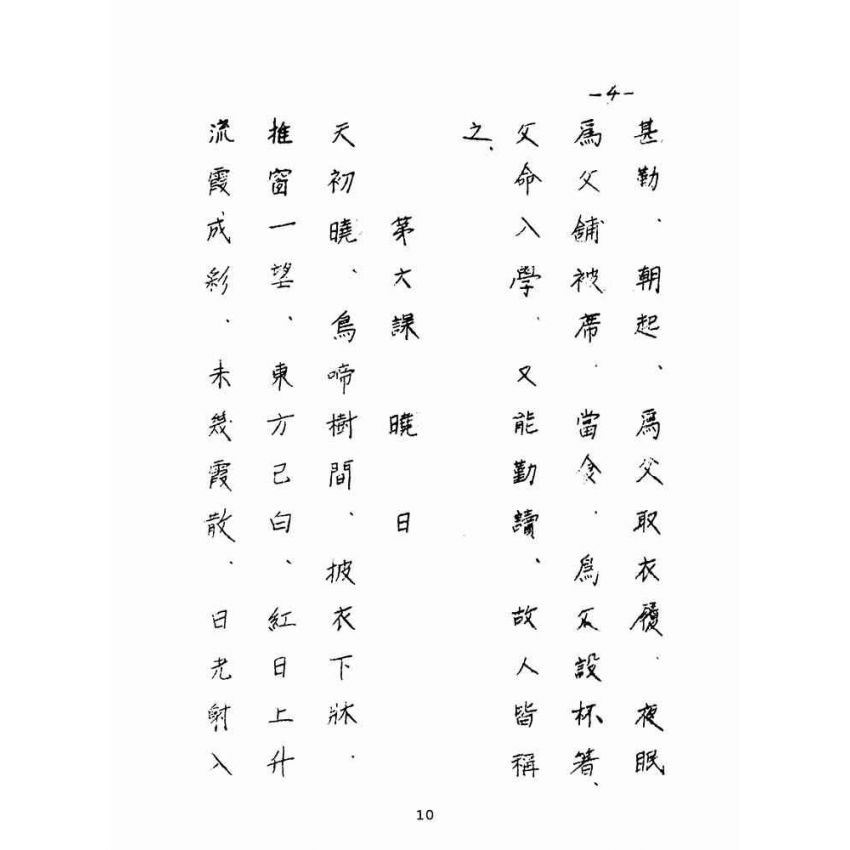 -4-
甚勤、朝起、爲父取衣履.夜眠
爲父舖被蓆.當食.爲父設杯箸、
父命入學.又能勤讀、故人皆稱
之、
第六課 曉日
天初曉、鳥啼樹間、披衣下牀.
推窗一望、東方已白、紅日上升
流霞成彩.未幾霞散、日光射入
10